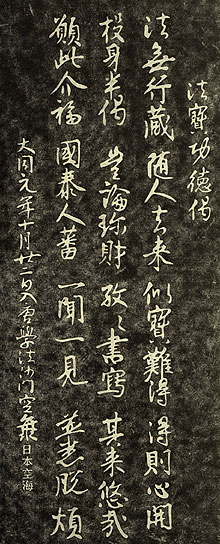 法寶功德偈
法無行藏 隨人去来 似寶難得 得則心開
投身半偈 豈論珎財 孜々書寫 其来悠哉
願此介福 國泰人蕃 一聞一見 並悉脱煩
大同元年十月廿二日入唐學法沙门空海
日本空海